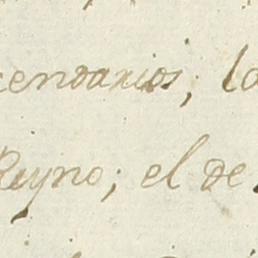 cendarios, lo
Reyno; el de